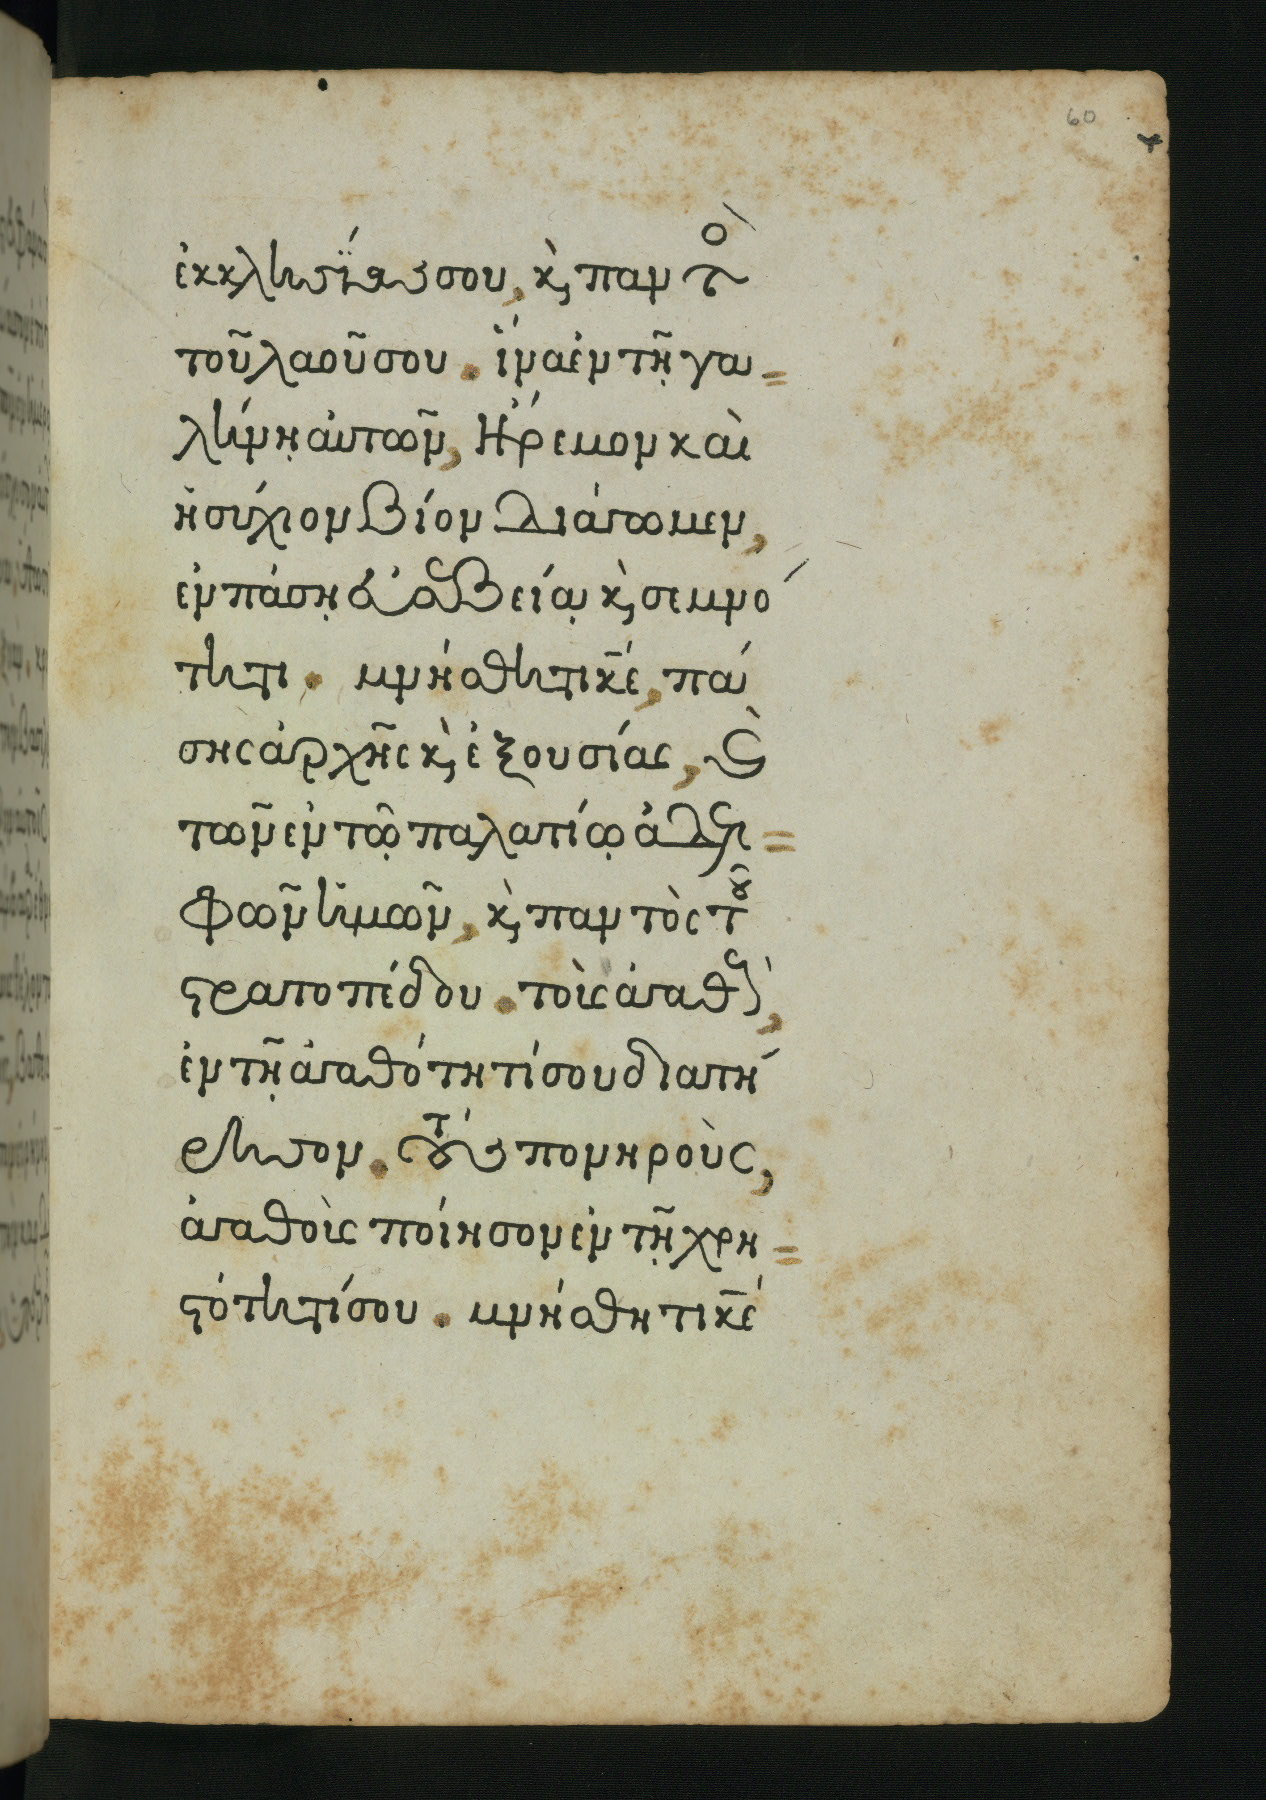 60
ἐκκλησίας σου, κ παντὸ
τοῦ λαοῦ σου. ἵνα ἐν τῇ γα=
λήνῃ αὐτῶν, ἤρεμον καὶ
ἡσύχιον βίον διάγωμεν,
ἐν πάσῃ εὐσεβείᾳ κ σεμνό
τητι. μνήσθητι κ̅ε, πά
σης ἀρχῆς κ ἐξουσίας, καὶ
τῶν ἐν τῷ παλατίῳ ἀδελ=
φῶν ἡμῶν, κ παντὸς τοῦ
στρατοπέδου. τοὺς ἀγαθοὺς,
ἐν τῇ ἀγαθότητί σου διατή
ρησον. τοὺς πονηροὺς,
ἀγαθοὺς ποίησον ἐν τῇ χρη=
στότητί σου. μνήσθητι κ̅ε